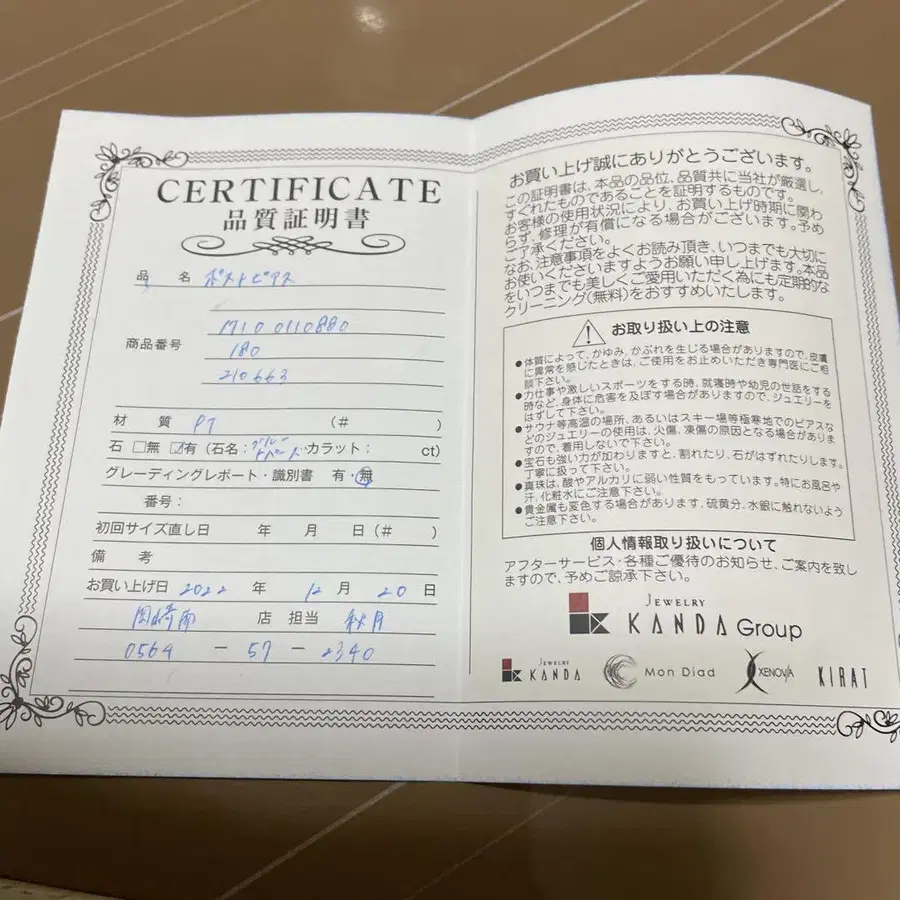 CERTIFICATE
品質証明書
品 名 ポストピアス
商品番号
17100110880
180
210663
材 質 PT (# )
石 □無 ☑有 (石名：ブルートパーズ・カラット： ct)
グレーディングレポート・識別書 有・無
番号：
初回サイズ直し日 年 月 日 (# )
備 考
お買い上げ日 2022 年 12 月 20 日
岡崎南 店 担当 秋月
0564 - 57 - 2340
お買い上げ誠にありがとうございます。
この証明書は、本品の品位、品質共に当社が厳選し、
すぐれたものであることを証明するものです。
お客様の使用状況により、お買い上げ時期に関わ
らず、修理が有償になる場合がございます。予め
ご了承ください。
なお、注意事項をよくお読み頂き、いつまでも大切に
お使いくださいますようお願い申し上げます。本品
をいつまでも美しくご愛用いただく為にも定期的な
クリーニング(無料)をおすすめいたします。
お取り扱い上の注意
●体質によって、かゆみ、かぶれを生じる場合がありますので、皮膚
に異常を感じたときは、ご使用をお止めいただき専門医にご相
談下さい。
●力仕事や激しいスポーツをする時、就寝時や幼児の世話をする
時など、身体に危害を及ぼす場合がありますので、ジュエリーを
はずして下さい。
●サウナ等高温の場所、あるいはスキー場等極寒地でのピアスな
どのジュエリーの使用は、火傷、凍傷の原因となる場合がありま
すので、着用しないで下さい。
●宝石も強い力が加わりますと、割れたり、石がはずれたりします。
丁寧に扱って下さい。
●真珠は、酸やアルカリに弱い性質をもっています。特にお風呂や
汗、化粧水にご注意下さい。
●貴金属も変色する場合があります、硫黄分、水銀に触れないよう
ご注意下さい。
個人情報取り扱いについて
アフターサービス・各種ご優待のお知らせ、ご案内を致し
ますので、予めご諒承下さい。
JEWELRY
KANDA Group
JEWELRY
KANDA
Mon Diad
XENOVIA
KIRAT